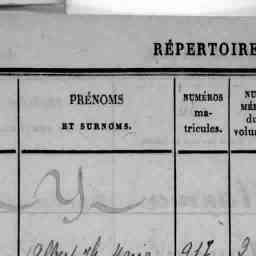 RÉPERTOIRE
PRÉNOMS
ET SURNOMS.
NUMÉROS
ma-
tricules.
NU
MÉ
du
volu
Y
Albert
917 3